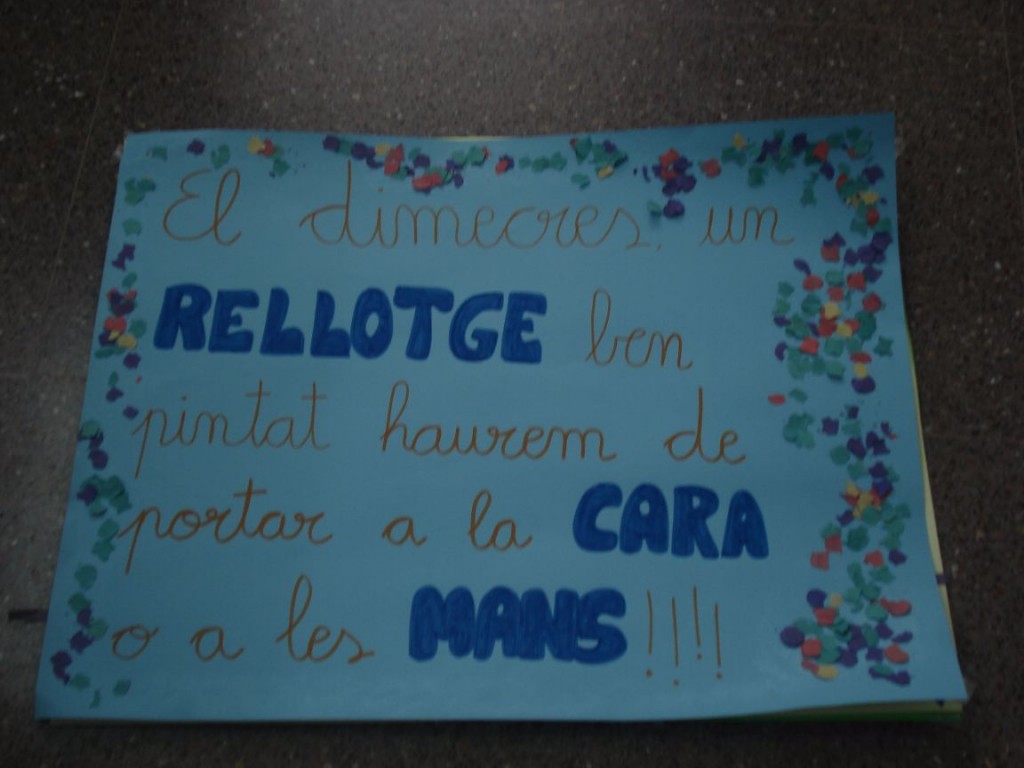 El dimecres, un
RELLOTGE ben
pintat haurem de
portar a la CARA
o a les MANS!!!!